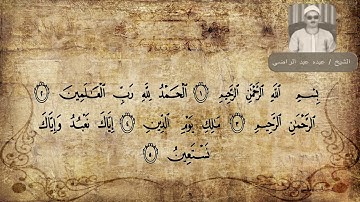 الشيخ / عبده عبد الراضي
بِسْمِ ٱللَّهِ ٱلرَّحْمَٰنِ ٱلرَّحِيمِ ١ ٱلْحَمْدُ لِلَّهِ رَبِّ ٱلْعَٰلَمِينَ ٢
ٱلرَّحْمَٰنِ ٱلرَّحِيمِ ٣ مَٰلِكِ يَوْمِ ٱلدِّينِ ٤ إِيَّاكَ نَعْبُدُ وَإِيَّاكَ
نَسْتَعِينُ ٥